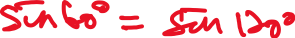 sin 60° = sin 120°